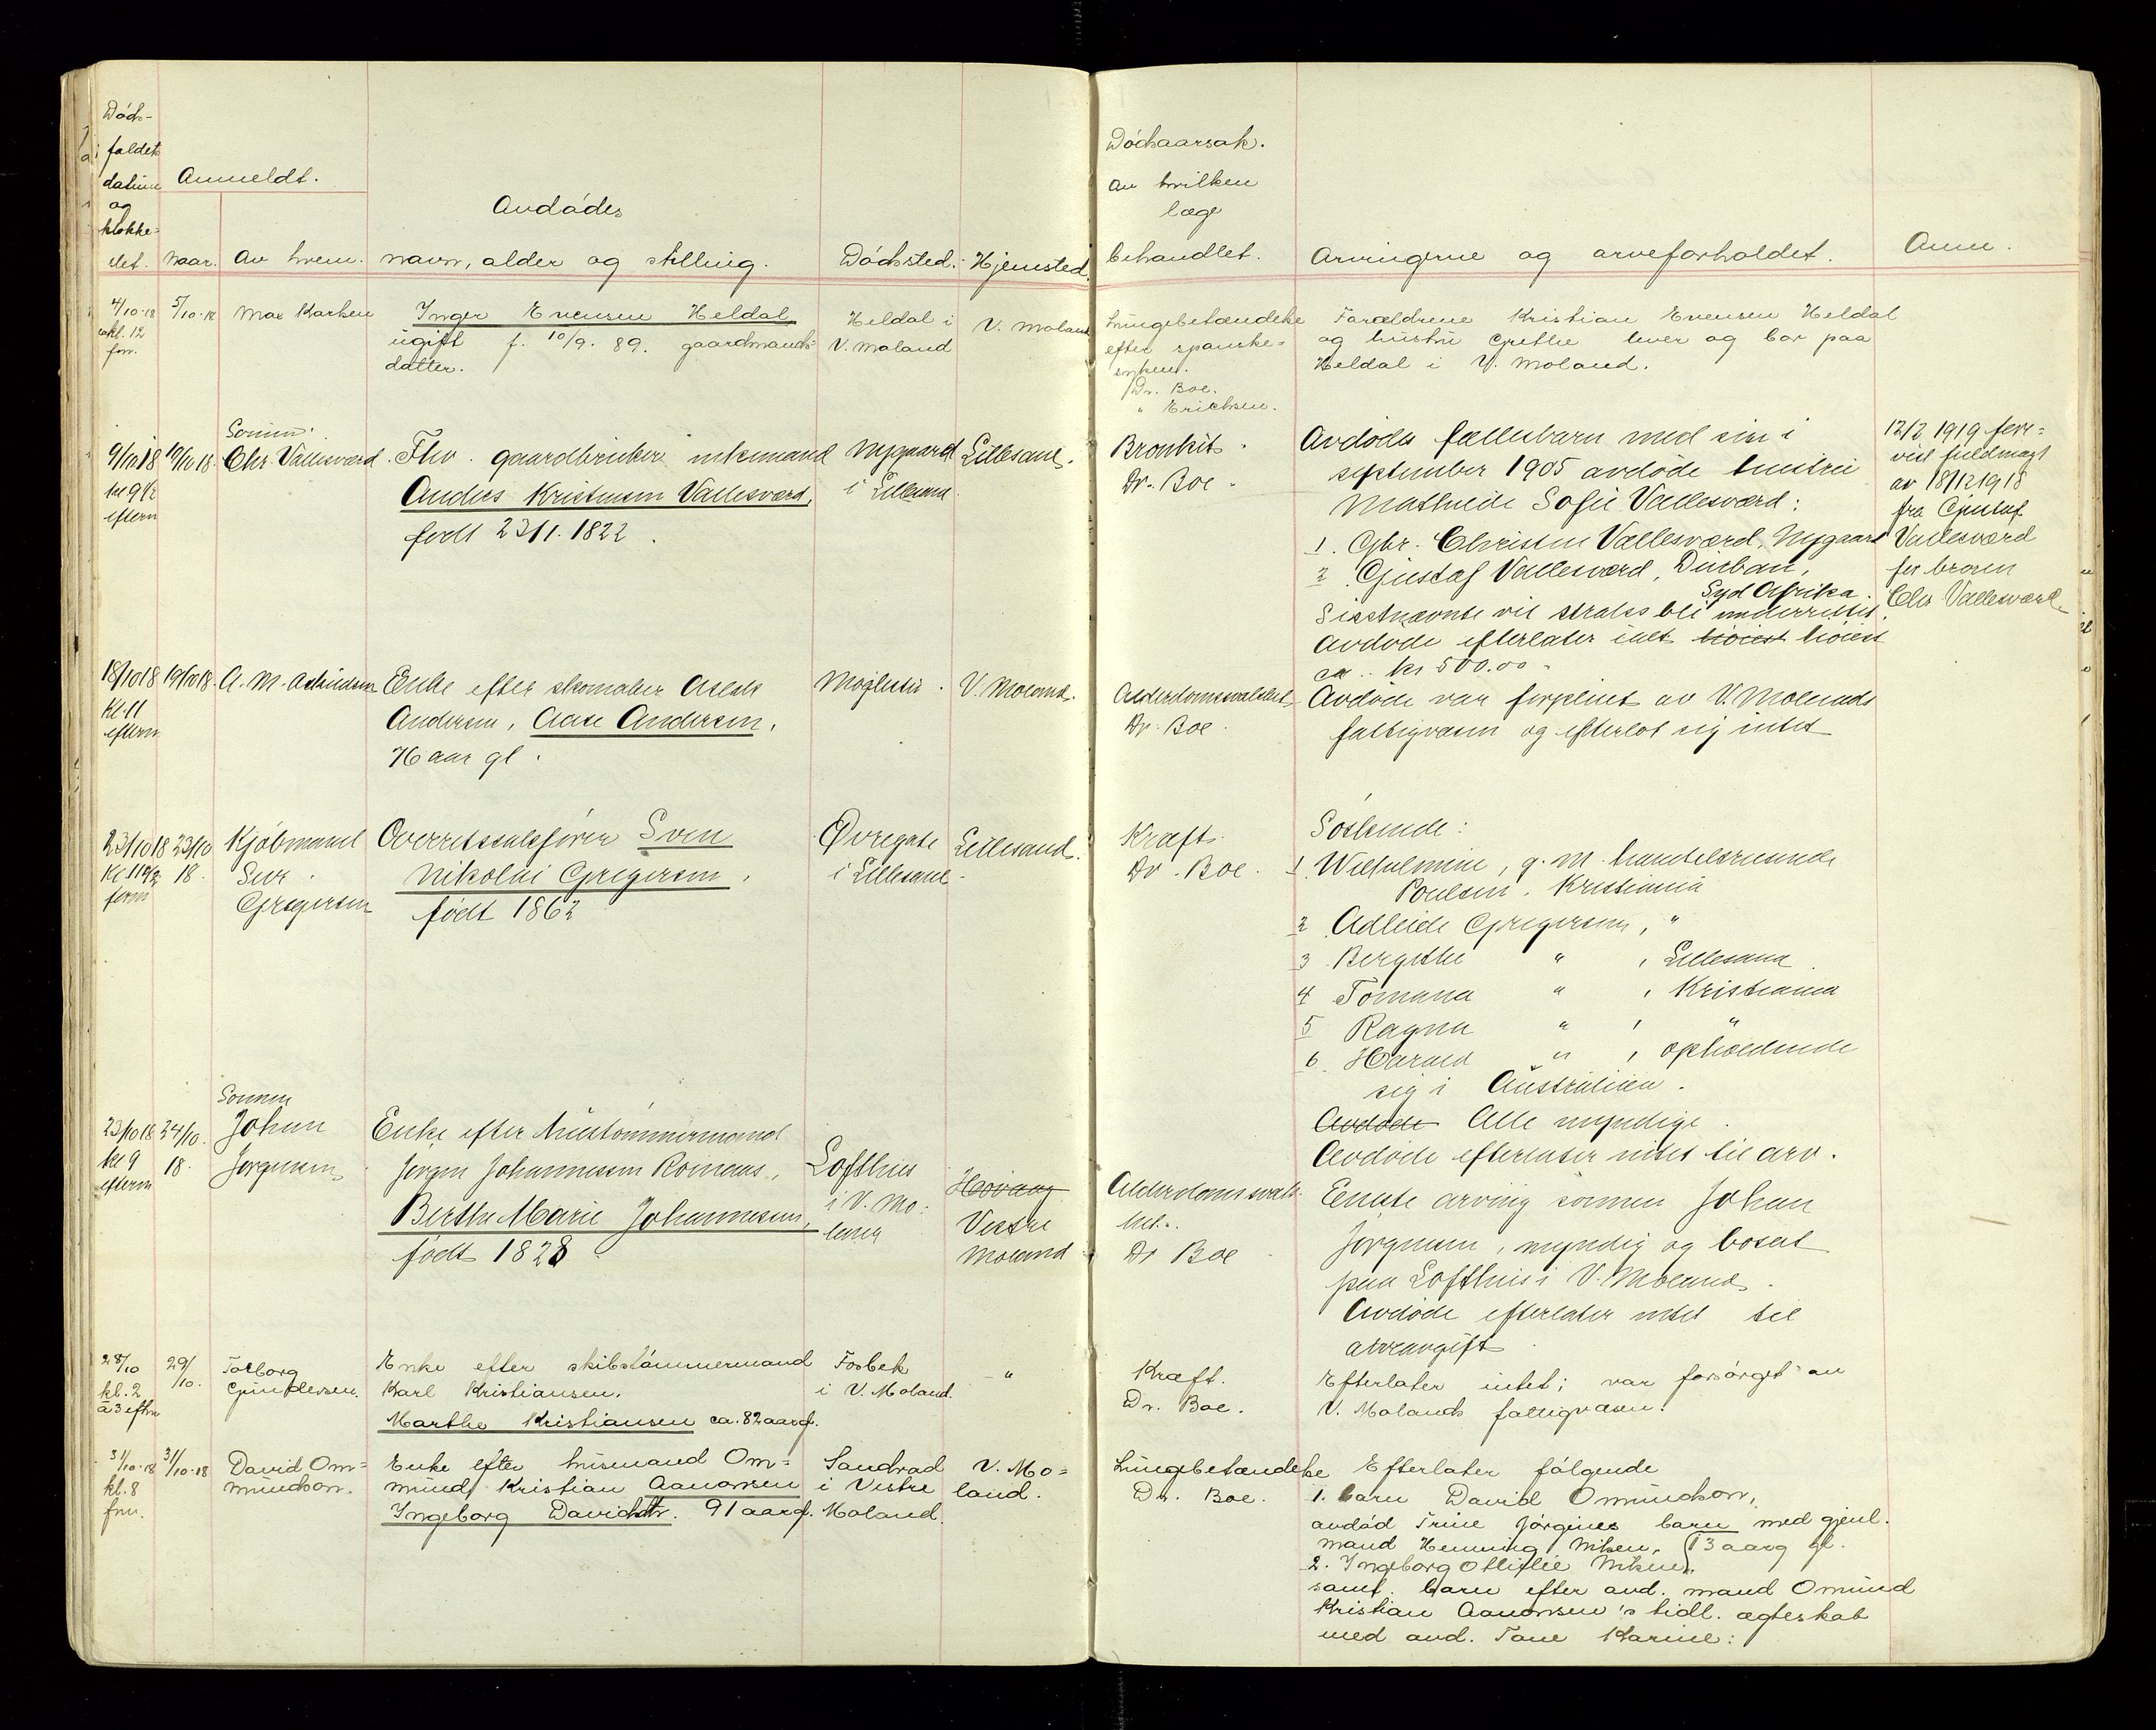 Døds-
faldets
datum
og
klokke-
slet.
Anmeldt.
naar.
av hvem.
Avdødes
navn, alder og stilling.
Dødssted.
Hjemsted.
Dødsaarsak.
av hvilken
læge
behandlet.
Arvingerne og arveforholdet.
Anm.
4/10-18
kl. 12
fm.
5/10-18
Max Karlsen
Inger Evensen Heldal
ugift f. 10/9. 89. gaardmands-
datter.
Heldal i
V. Moland
V. Moland
Lungebetændelse
efter spanske-
syken.
Dr. Boe.
" Erichsen.
Forældrene Kristian Evensen Heldal
og hustru Grethe lever og bor paa
Heldal i V. Moland.
9/10 18
kl 9 1/2
efterm
10/10 18.
Sønnen
Chr. Vallesværd.
Fhv. gaardbruker enkemand
Anders Kristensen Vallesværd,
født 23/1. 1822.
Nygaard
i Lillesand.
Lillesand.
Bronkit.
Dr. Boe.
Avdødes fællesbarn med sin i
september 1905 avdøde hustru
Mathilde Sofie Vallesværd:
1. Gbr. Christen Vallesværd, Nygaard
2. Gustaf Vallesværd, Durban,
Syd Afrika.
Sistnævnte vil straks bli underrettet.
Avdøde efterlater ialt høiest høiest
ca. kr 500.00
12/2 1919 fore-
vist fuldmagt
av 18/12 1918
fra Gustaf
Vallesværd
for broren
Chr Vallesværd
18/10 18
kl. 11
efterm
19/10 18.
A. M. Aslaksen
Enke efter skomaker Aslak
Andersen, Aase Andersen,
76 aar gl.
Møglestu.
V. Moland.
Alderdomssvakhet
Dr. Boe.
Avdøde var forpleiet av V. Molands
fattigvæsen og efterlot sig intet
23/10 18
kl 11 1/2
form
23/10
18.
Kjøbmand
Gregersen
Overretssakfører Sven
Nikolai Gregersen,
født 1862
Øvregate
i Lillesand.
Lillesand.
Kræft.
Dr. Boe.
Søskende:
1. Wilhelmine, g. m. handelsreisende
Poulsen, Kristiania
2 Adleide Gregersen, "
3 Bergithe " , Lillesand.
4 Tomana " , Kristiania
5 Ragna " , "
6. Harald " , opholdende
sig i Australien.
Avdøde Alle myndige.
Avdøde efterlater intet til arv.
23/10 18
kl 9
efterm
24/10.
18.
Sønnen
Johan
Jørgensen
Enke efter hustømmermand
Jørgen Johannesen Romenes,
Berthe Marie Johannesen,
født 1828
Lofthus
i V. Mo-
land
Høivaag
Vestre
Moland
Alderdomssvak-
het.
Dr Boe
Eneste arving sønnen Johan
Jørgensen, myndig og bosat
paa Lofthus i V. Moland.
Avdøde efterlater intet til
arveavgift.
28/10
kl. 2
à 3 eftm
29/10.
Tolborg
Gundersen.
Enke efter skibstømmermand
Karl Kristiansen.
Marthe Kristiansen ca. 82 aar g.
Fosbek
i V. Moland.
"
Kræft.
Dr. Boe.
Efterlater intet; var forsørget av
V. Molands fattigvæsen.
31/10-18
kl. 8
fm.
31/10-18
David Om-
mundson.
Enke efter husmand Om-
mund Kristian Aanonsen
Ingeborg Davidsdtr. 91 aar g.
Sandvad
i Vestre
Moland.
V. Mo-
land.
Lungebetændelse
Dr. Boe.
Efterlater følgende
1. barn David Omundson,
avdød Trine Jørgines barn med gjenl.
mand Henning Nilsen, 13 aarg gl.
2. Ingeborg Otilie Nilsen
samt. barn efter avd. mand Omund
Kristian Aanonsen's tidl. ægteskab
med avd. Tone Karine: